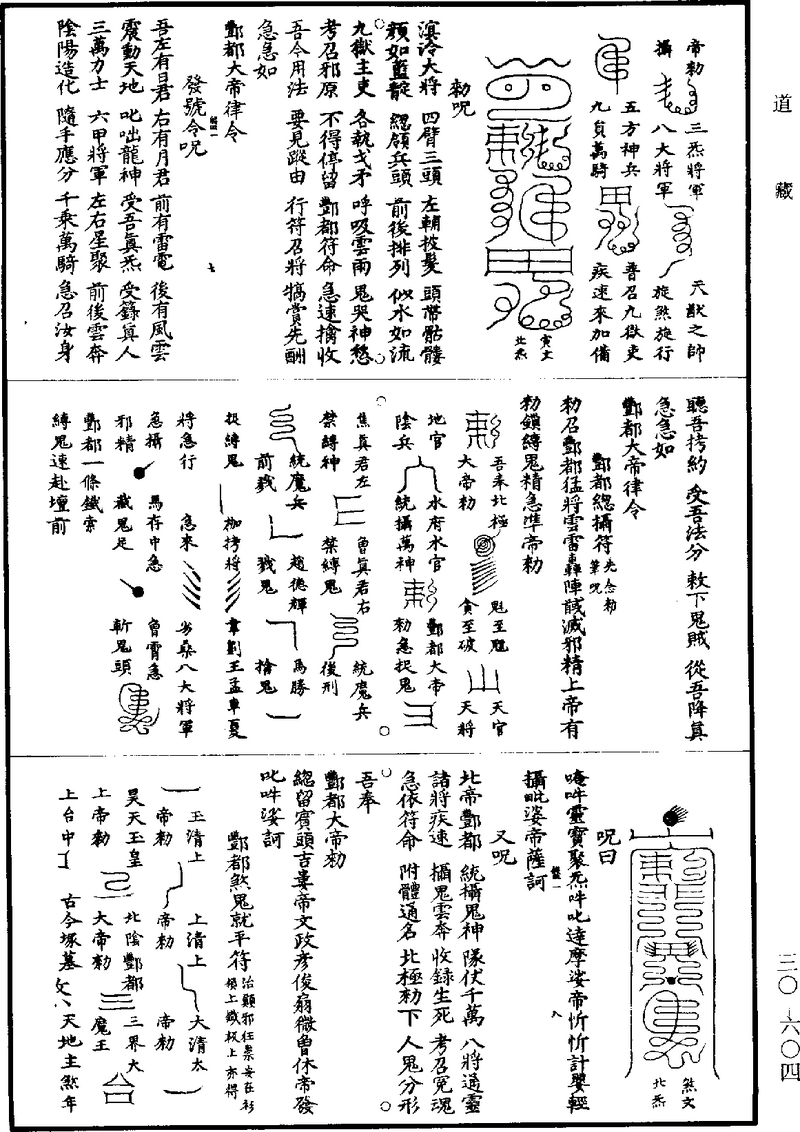 道藏
三〇-六〇四
帝勑 三炁將軍 天猷之帥
攝 八大將軍 旋煞施行
五方神兵 普召九獄吏
九員萬騎 疾速來加備
寅文
北炁
勑呪
滇泠大將 四臂三頭 左朝披髮 頭帶骷髏
頦如藍靛 緫領兵頭 前後排列 似水如流
九獄主吏 各執戈矛 呼吸雲雨 鬼哭神愁
考召邪原 不得停留 酆都符命 急速擒收
吾今用法 要見蹤由 行符召將 犒賞先酬
急急如
酆都大帝律令
發號令呪
七
吾左有日君 右有月君 前有雷電 後有風雲
震動天地 叱咄龍神 受吾眞炁 受籙眞人
三萬力士 六甲將軍 左右星聚 前後雲奔
陰陽造化 隨手應分 千乘萬騎 急召汝身
聽吾拷約 受吾法分 敕下鬼賊 從吾降眞
急急如
酆都大帝律令
酆都緫攝符 先念勑筆呪
勑召酆都猛將雲雷轟陣馘滅邪精上帝有
勑鎖縛鬼精急準帝勑
吾奉北極 魁至魒 天官
大帝勑 貪至破 天將
地官 水府水官 酆都大帝
陰兵 統攝萬神 勑急捉鬼
焦眞君左 魯眞君右 統魔兵
禁縛神 禁縛鬼 後刑
統魔兵 趙德輝 馬勝
前戮 戮鬼 擒鬼
捉縛鬼 枷拷將 韋劉王孟車夏
將急行 急來 劣桑八大將軍
急攝 馬存中急 魯霄急
邪精 截鬼足 斬鬼頭
酆都一條鐵索
縛鬼速赴壇前
煞文
北炁
呪曰
唵吽靈寶聚炁吽叱達摩娑帝忻忻計嬰輕
攝毗婆帝薩訶
八
又呪
北帝酆都 統攝鬼神 隊伏千萬 八將通靈
諸將疾速 攝鬼雲奔 收錄生死 考召冤魂
急依符命 附體通名 北極勑下 人鬼分形
吾奉
酆都大帝勑
緫留賓頭吉婁帝文政彥俊扇微魯休帝發
叱吽娑訶
酆都煞鬼就平符
玉清上 上清上 大清太
帝勑 帝勑 帝勑
昊天玉皇 北陰酆都 三界大
上帝勑 大帝勑 魔王
上台中 古今塚墓 天地主煞年